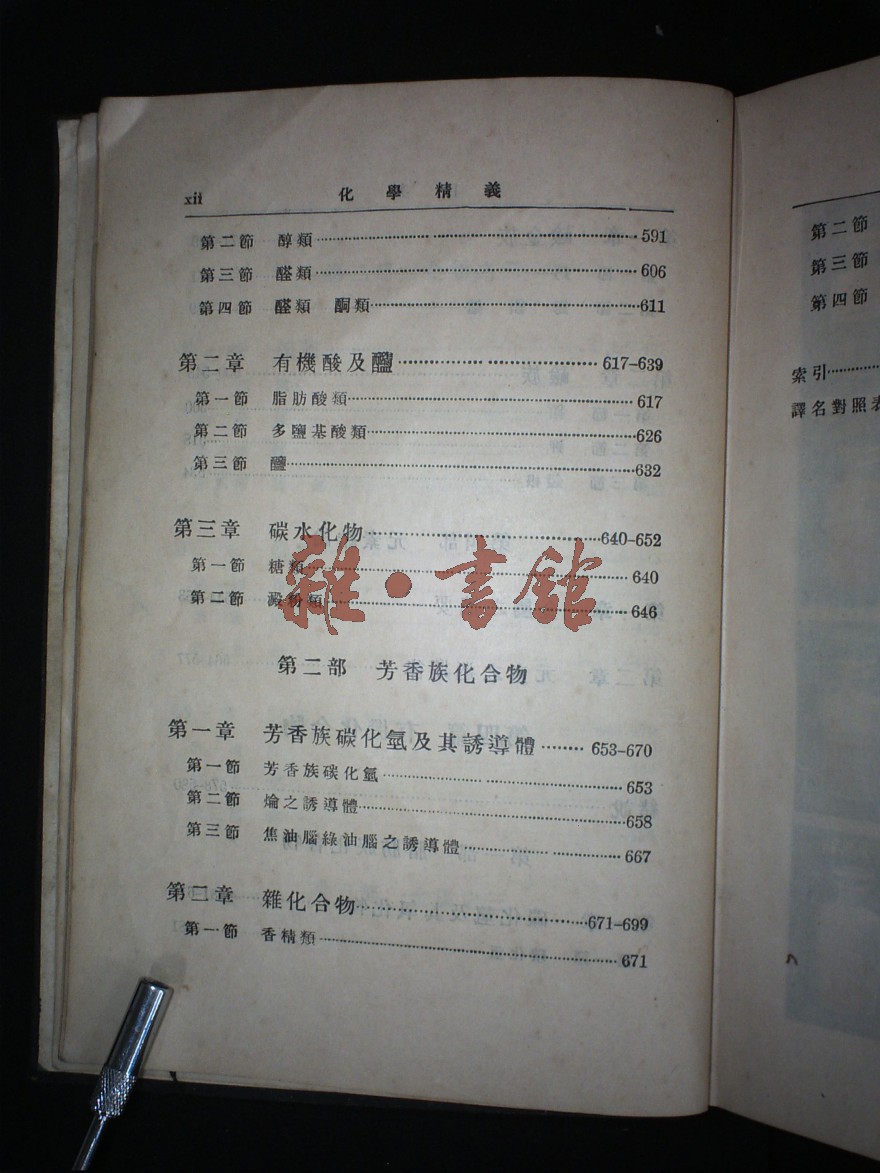 xii 化學精義
第二節 醇類 591
第三節 醛類 606
第四節 醛類 酮類 611
第二章 有機酸及 617-639
第一節 脂肪酸類 617
第二節 多鹽基酸類 626
第三節 632
第三章 碳水化物 640-652
第一節 糖類 640
第二節 澱粉類 646
雜·書館
第二部 芳香族化合物
第一章 芳香族碳化氫及其誘導體 653-670
第一節 芳香族碳化氫 653
第二節 之誘導體 658
第三節 焦油腦綠油腦之誘導體 667
第二章 雜化合物 671-699
第一節 香精類 671
第二節
第三節
第四節
索引
譯名對照表